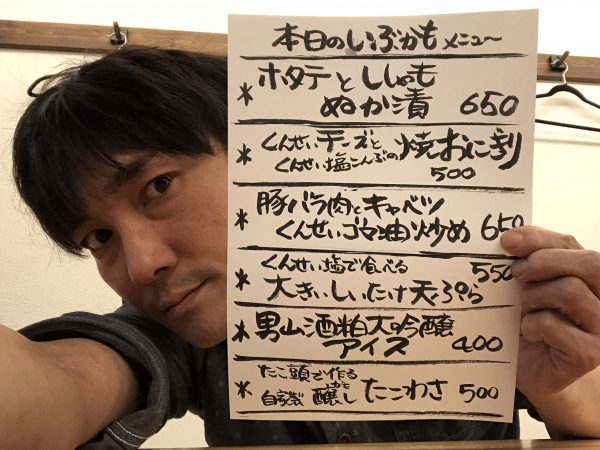 本日のいぶかもメニュー
＊ホタテとししゃも
ぬか漬 650
＊くんせいチーズと
くんせい塩こんぶの焼おにぎり
500
＊豚バラ肉とキャベツ
くんせいゴマ油炒め 650
＊くんせい塩で食べる 550
大きいしいたけ天ぷら
＊男山酒粕大吟醸
アイス 400
＊たこ頭で作る
自家製 醸し たこわさ 500
かもし